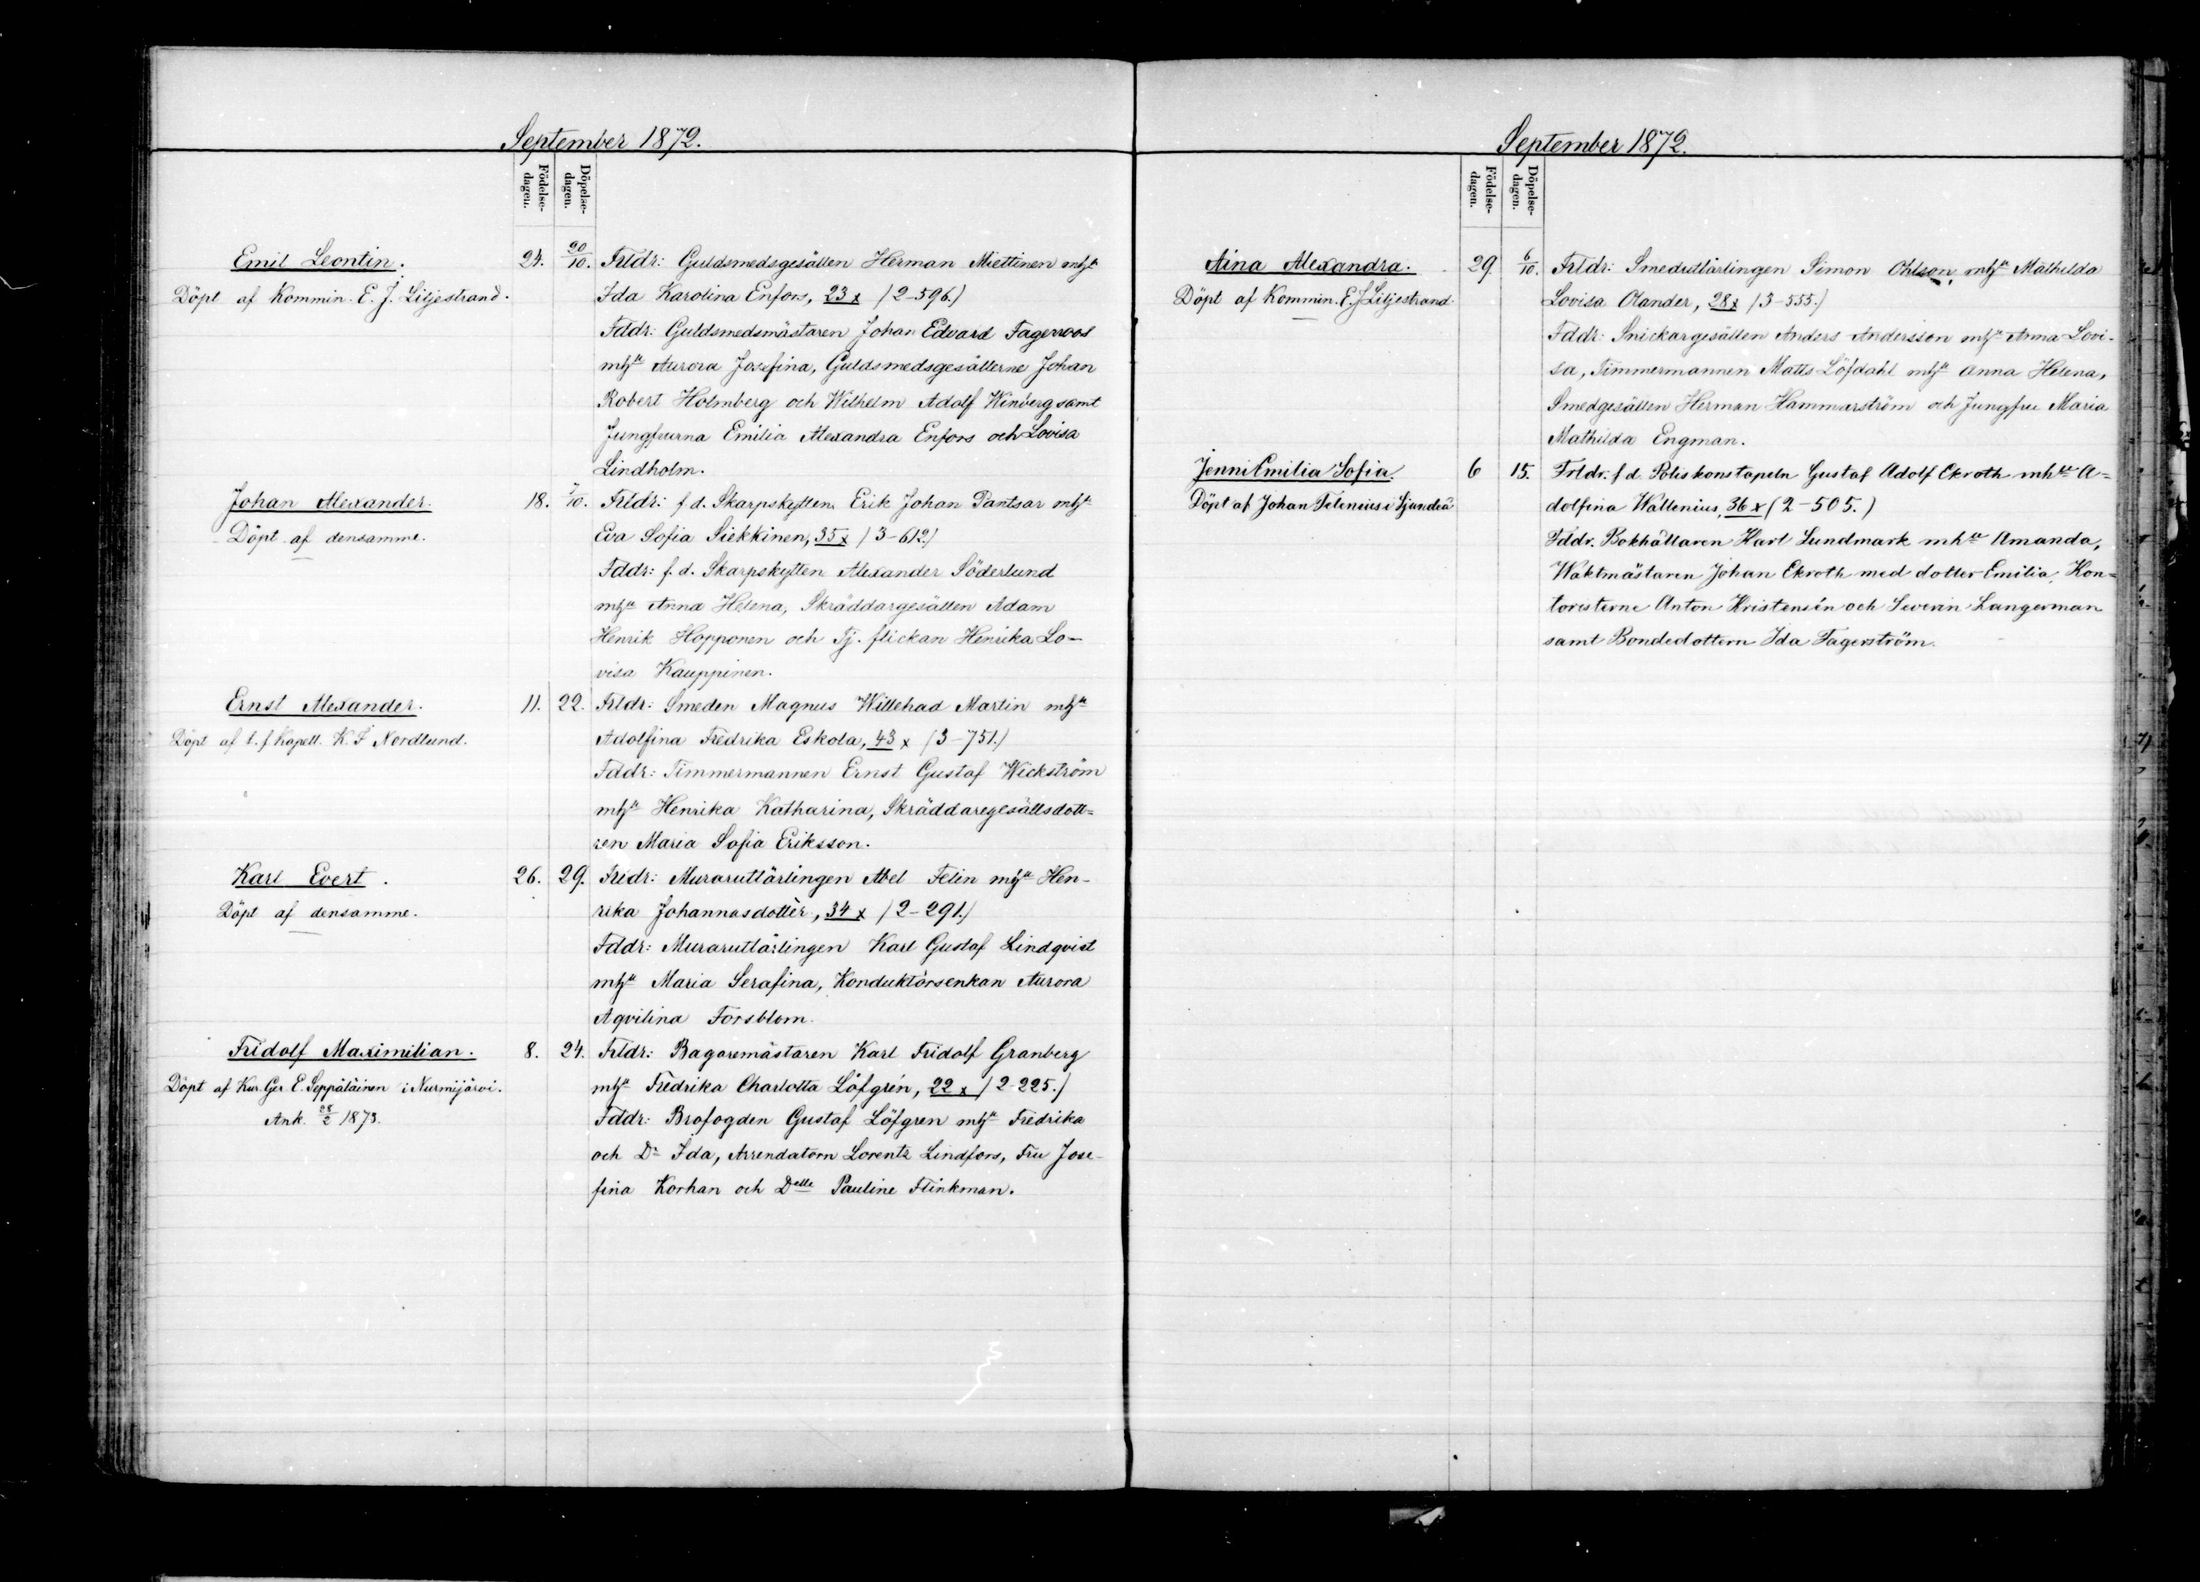 September 1872.
Födelse-dagen. Döpelse-dagen.
Emil Leontin. 24. 20/10. Frldr: Guldsmedsgesällen Herman Miettinen mhu
Döpt af Kommin. E. J. Liljestrand. Ida Karolina Enfors, 23 x (2-596.)
Fddr: Guldsmedsmästaren Johan Edvard Fagerroos
mhu Aurora Josefina, Guldsmedsgesällerne Johan
Robert Holmberg och Wilhelm Adolf Winberg samt
Jungfrurna Emilia Alexandra Enfors och Lovisa
Lindholm.
Johan Alexander. 18. /10. Frldr: f. d. Skarpskytten Erik Johan Pantsar mhu
Döpt af densamme. Eva Sofia Siekkinen, 35 x (3-612.)
Fddr: f. d. Skarpskytten Alexander Söderlund
mhu Anna Helena, Skräddargesällen Adam
Henrik Hopponen och Tj. flickan Henrika Lo-
visa Kauppinen.
Ernst Alexander. 11. 22. Frldr: Smeden Magnus Willehad Martin mhu
Döpt af t. f. Kapell. K. F. Nordlund. Adolfina Fredrika Eskola, 43 x (3-751.)
Fddr: Timmermannen Ernst Gustaf Wickström
mhu Henrika Katharina, Skräddaregesällsdott=
ren Maria Sofia Eriksson.
Karl Evert. 26. 29. Frldr: Murarutlärlingen Abel Felin mhu Hen-
Döpt af densamme. rika Johannasdotter, 34 x (2-291.)
Fddr: Murarutlärlingen Karl Gustaf Lindqvist
mhu Maria Serafina, Konduktörsenkan Aurora
Aqvilina Forsblom.
Fridolf Maximilian. 8. 24. Frldr: Bagaremästaren Karl Fridolf Granberg
Döpt af Kur. Ger E. Seppäläinen i Nurmijärvi. mhu Fredrika Charlotta Löfgrén, 22 x (2-225.)
Ank. 28/2 1873. Fddr: Brofogden Gustaf Löfgren mhu Fredrika
och Dr Ida, Arrendatorn Lorentz Lindfors, Fru Jose-
fina Korhan och Delle Pauline Flinkman.
September 1872.
Födelse-dagen. Döpelse-dagen.
Aina Alexandra. 29 6/10. Frldr: Smedutlärlingen Simon Ohlson, mhu Mathilda
Döpt af Kommin. E. J. Liljestrand. Lovisa Olander, 28 x (3-555.)
Fddr: Snickargesällen Anders Andersson mhu Anna Lovi-
sa, Timmermannen Matts Löfdahl mhu Anna Helena,
Smedgesällen Herman Hammarström och Jungfru Maria
Mathilda Engman.
Jenni Emilia Sofia. 6 15. Frldr. f. d. Poliskonstapeln Gustaf Adolf Ekroth mhu A=
Döpt af Johan Telenius i Sjundeå dolfina Wallenius, 36 x (2-505.)
Fddr. Bokhållaren Karl Lundmark mhu Amanda,
Waktmästaren Johan Ekroth med dotter Emilia, Kon=
toristerne Anton Kristensén och Severin Langerman
samt Bondedottern Ida Fagerström.